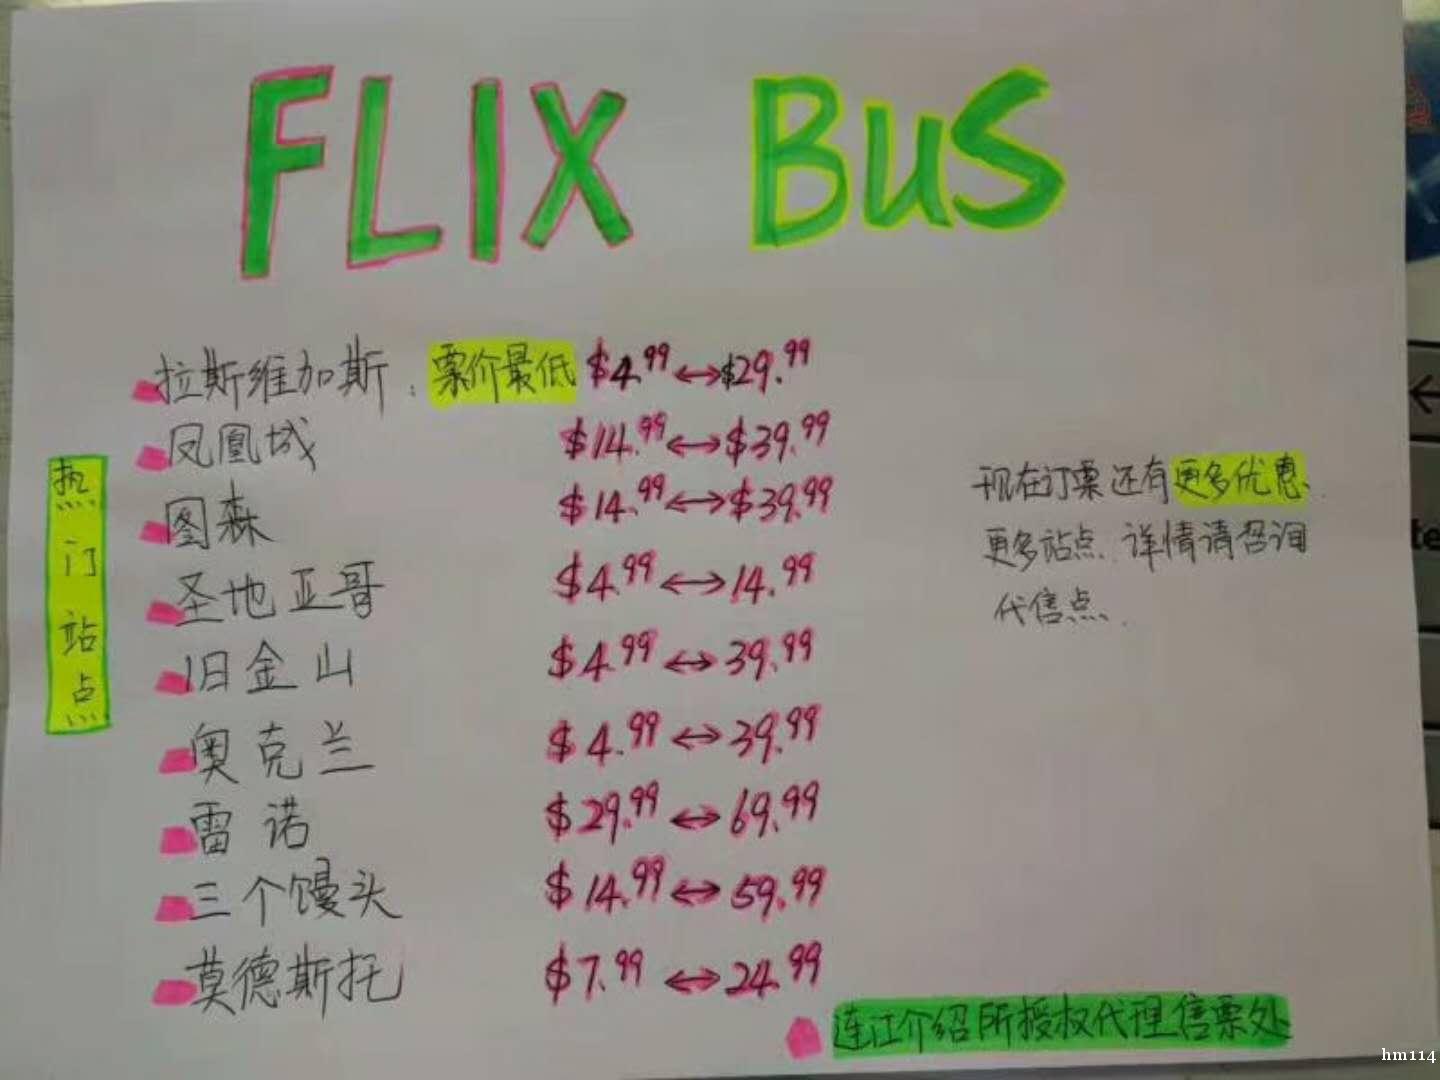 FLIX BUS
拉斯维加斯: 票价最低 $4.99 ↔ $29.99
凤凰城 $14.99 ↔ $39.99
图森 $14.99 ↔ $39.99
圣地亚哥 $4.99 ↔ 14.99
旧金山 $4.99 ↔ 39.99
奥克兰 $4.99 ↔ 39.99
雷诺 $29.99 ↔ 69.99
三个馒头 $14.99 ↔ 59.99
莫德斯托 $7.99 ↔ 24.99
热门站点
现在订票还有更多优惠.
更多站点. 详情请咨询
代售点.
连江介绍所授权代理售票处
hm114